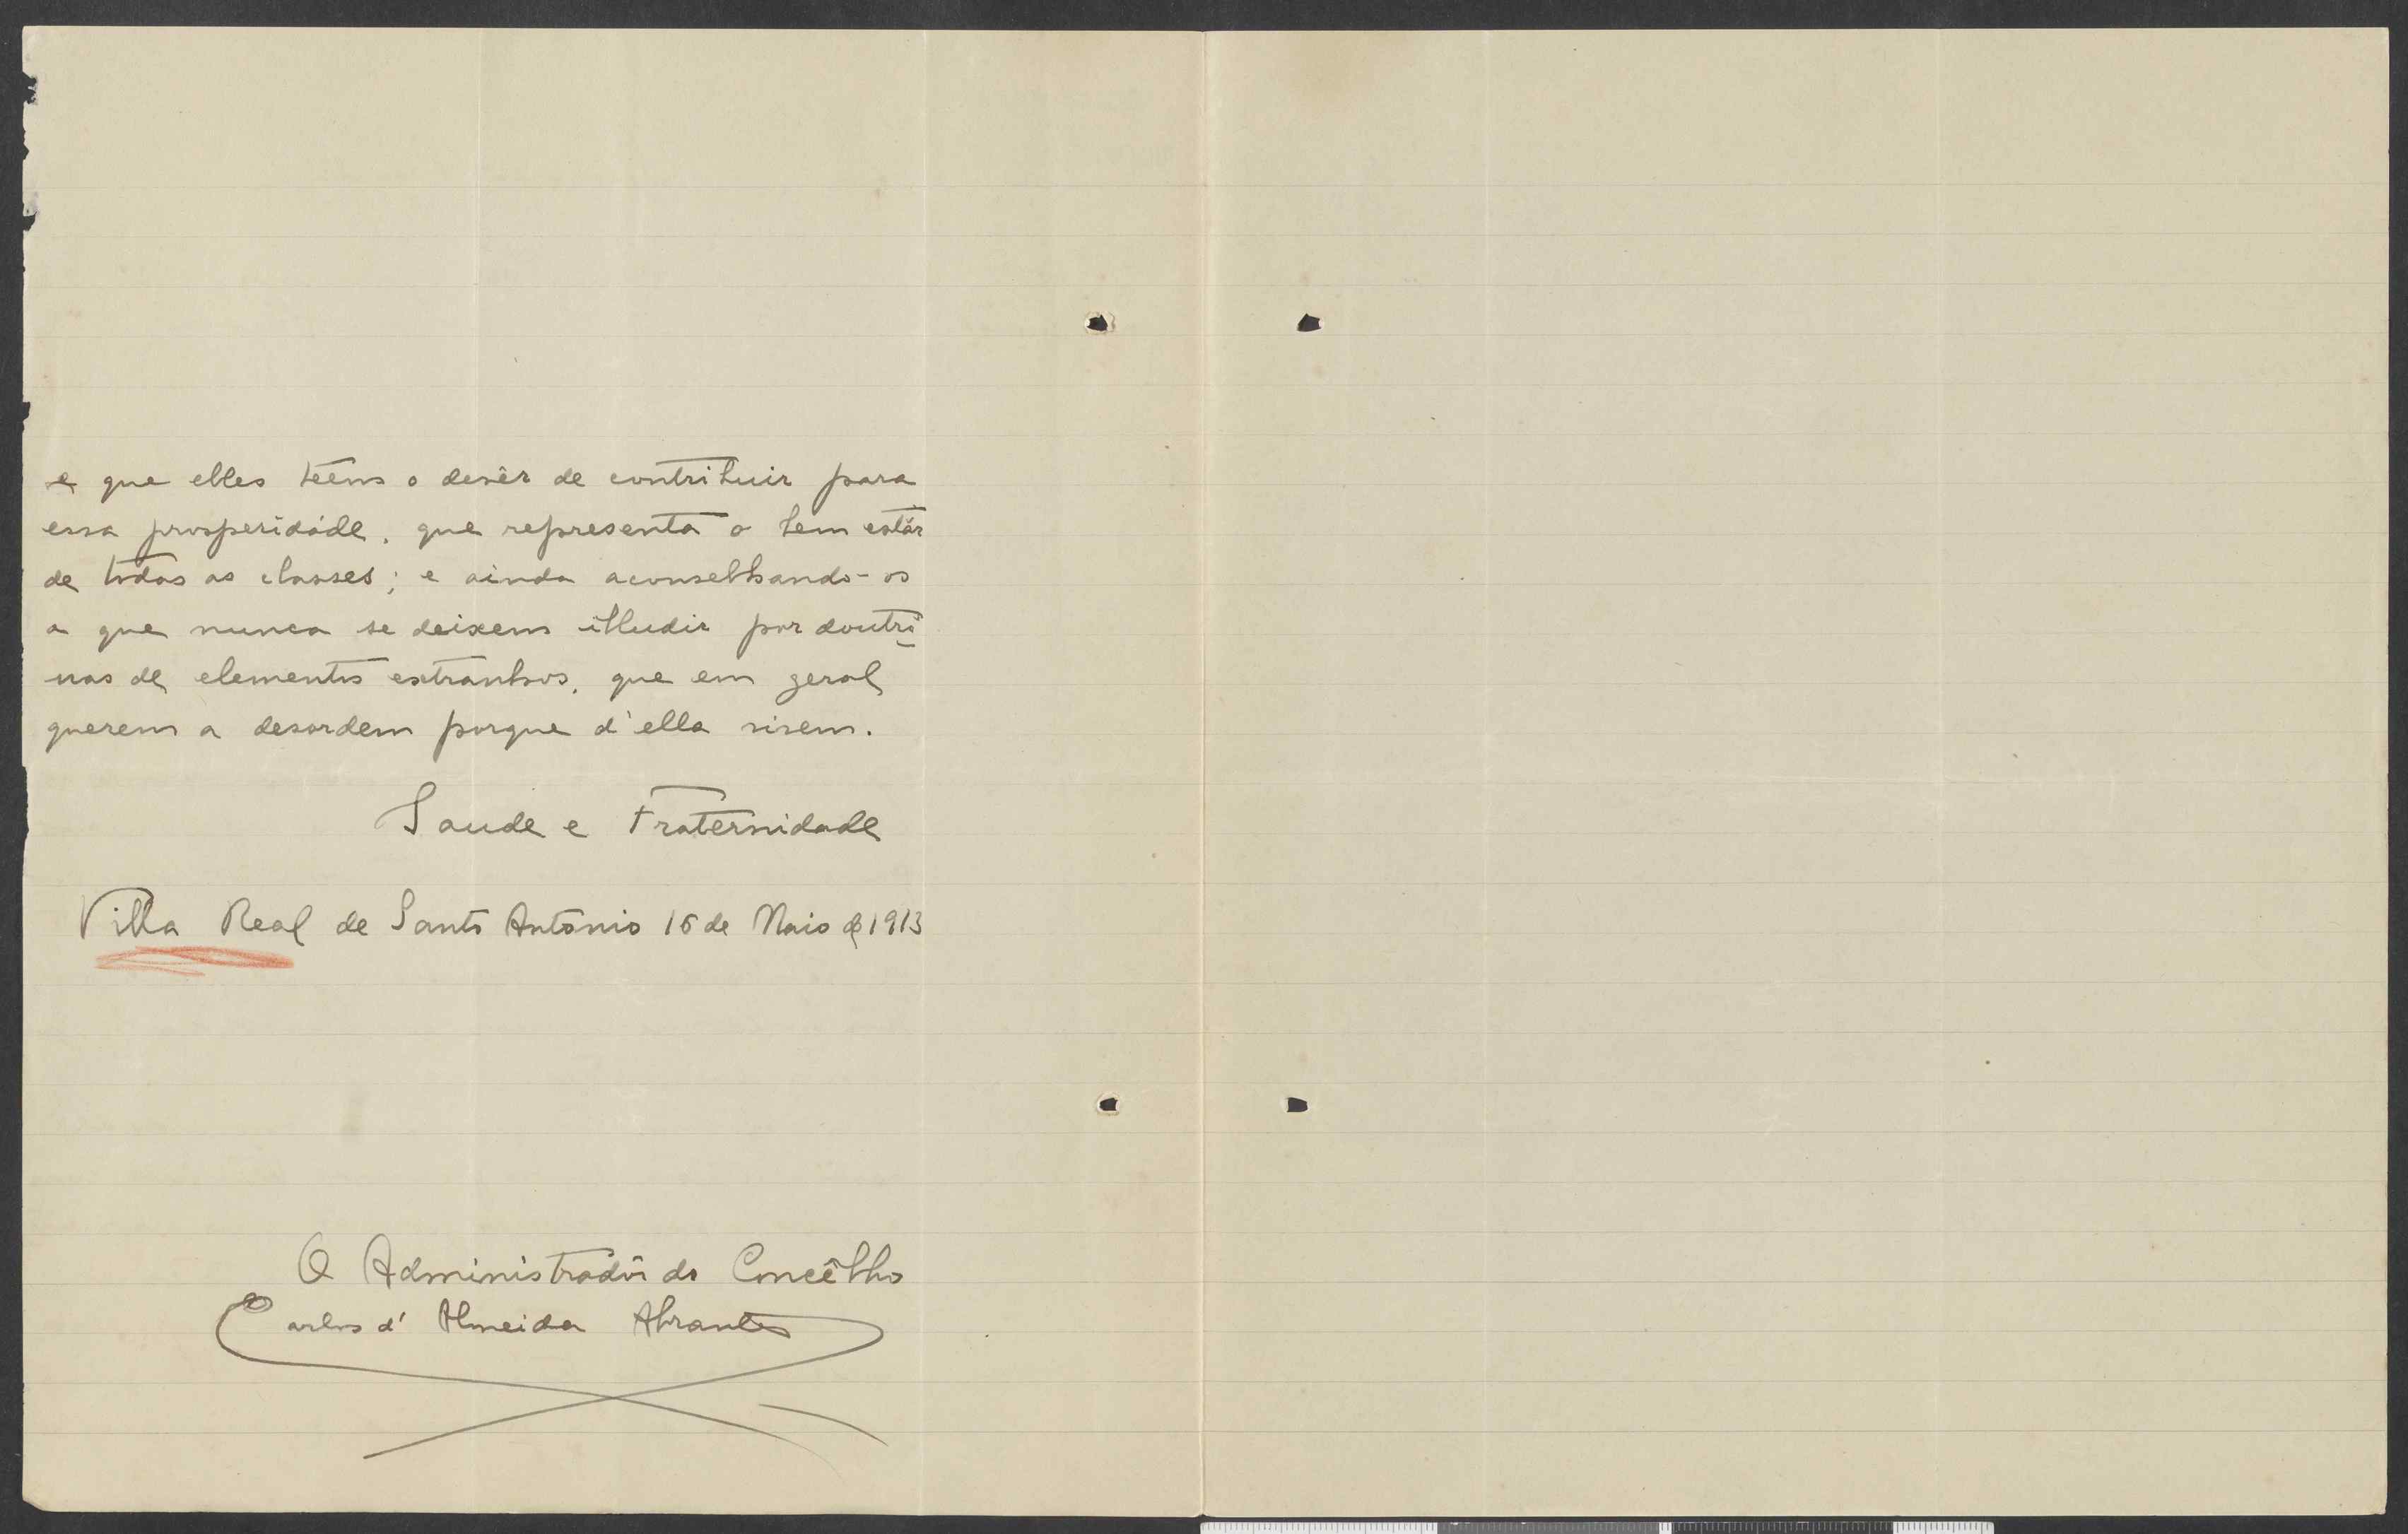 e que elles teem o devêr de contribuir para
essa prosperidáde, que representa o bem estár
de todas as classes; e ainda aconselhando-os
a que nunca se deixem illudir por doutri-
nas de elementos extranhos, que em geral
querem a desordem porque d'ella vivem.
Saude e Fraternidade
Villa Real de Santo Antonio 16 de Maio de 1913
O Administradôr do Concêlho
Carlos d'Almeida Abrantes